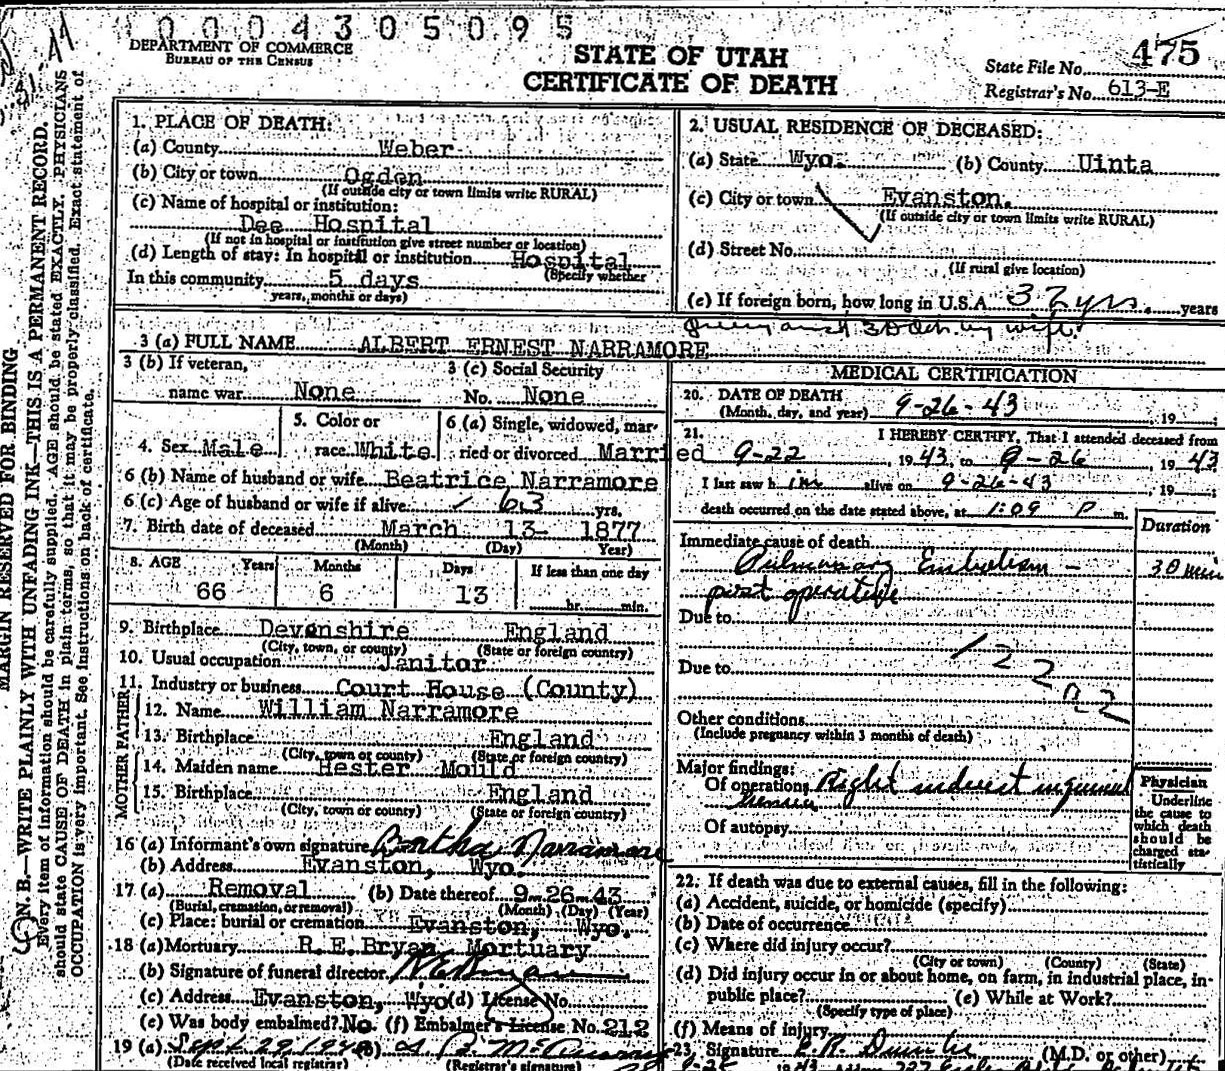 0004305095
DEPARTMENT OF COMMERCE
BUREAU OF THE CENSUS
STATE OF UTAH
CERTIFICATE OF DEATH
State File No. 475
Registrar's No. 613-E
MARGIN RESERVED FOR BINDING
N. B.—WRITE PLAINLY WITH UNFADING INK—THIS IS A PERMANENT RECORD.
Every item of information should be carefully supplied. AGE should be stated EXACTLY. PHYSICIANS
should state CAUSE OF DEATH in plain terms, so that it may be properly classified. Exact statement of
OCCUPATION is very important. See instructions on back of certificate.
1. PLACE OF DEATH:
(a) County Weber
(b) City or town Ogden
(If outside city or town limits write RURAL)
(c) Name of hospital or institution:
Dee Hospital
(If not in hospital or institution give street number or location)
(d) Length of stay: In hospital or institution Hospital
(Specify whether
In this community 5 days
years, months or days)
2. USUAL RESIDENCE OF DECEASED:
(a) State Wyo. (b) County Uinta
(c) City or town Evanston.
(If outside city or town limits write RURAL)
(d) Street No.
(If rural give location)
(e) If foreign born, how long in U.S.A. 32 yrs. years
by wife.
3 (a) FULL NAME ALBERT ERNEST NARRAMORE
3 (b) If veteran, name war None
3 (c) Social Security No. None
4. Sex Male
5. Color or race White
6 (a) Single, widowed, married or divorced Married
6 (b) Name of husband or wife Beatrice Narramore
6 (c) Age of husband or wife if alive 63 yrs.
7. Birth date of deceased March 13- 1877
(Month) (Day) Year)
8. AGE Years Months Days If less than one day
66 6 13 hr. min.
9. Birthplace Devonshire England
(City, town, or county) (State or foreign country)
10. Usual occupation Janitor
11. Industry or business Court House (County)
FATHER
12. Name William Narramore
13. Birthplace England
(City, town or county) (State or foreign country)
MOTHER
14. Maiden name Hester Mould
15. Birthplace England
(City, town or county) (State or foreign country)
16 (a) Informant's own signature Narramore
(b) Address Evanston, Wyo.
17 (a) Removal (b) Date thereof 9-26-43
(Burial, cremation, or removal) (Month) (Day) (Year)
(c) Place: burial or cremation Evanston, Wyo.
18 (a) Mortuary R. E. Bryan Mortuary
(b) Signature of funeral director
(c) Address Evanston, Wyo (d) License No.
(e) Was body embalmed? No. (f) Embalmer's License No. 212
19 (a) Sept 29, 1943 (b)
(Date received local registrar) (Registrar's signature)
MEDICAL CERTIFICATION
20. DATE OF DEATH
(Month, day, and year) 9-26-43, 19
21. I HEREBY CERTIFY, That I attended deceased from
9-22, 1943, to 9-26, 1943
I last saw him alive on 9-26-43, 19
death occurred on the date stated above, at 1:09 P m.
Duration
Immediate cause of death
Pulmonary Embolism - 30 min
post operative
Due to
Due to
122
Other conditions
(Include pregnancy within 3 months of death)
Major findings:
Of operations Right indirect inguinal
hernia
Of autopsy
Physician
Underline
the cause to
which death
should be
charged sta-
tistically
22. If death was due to external causes, fill in the following:
(a) Accident, suicide, or homicide (specify)
(b) Date of occurrence
(c) Where did injury occur?
(City or town) (County) (State)
(d) Did injury occur in or about home, on farm, in industrial place, in-
public place? (e) While at Work?
(Specify type of place)
(f) Means of injury
23. Signature (M.D. or other)